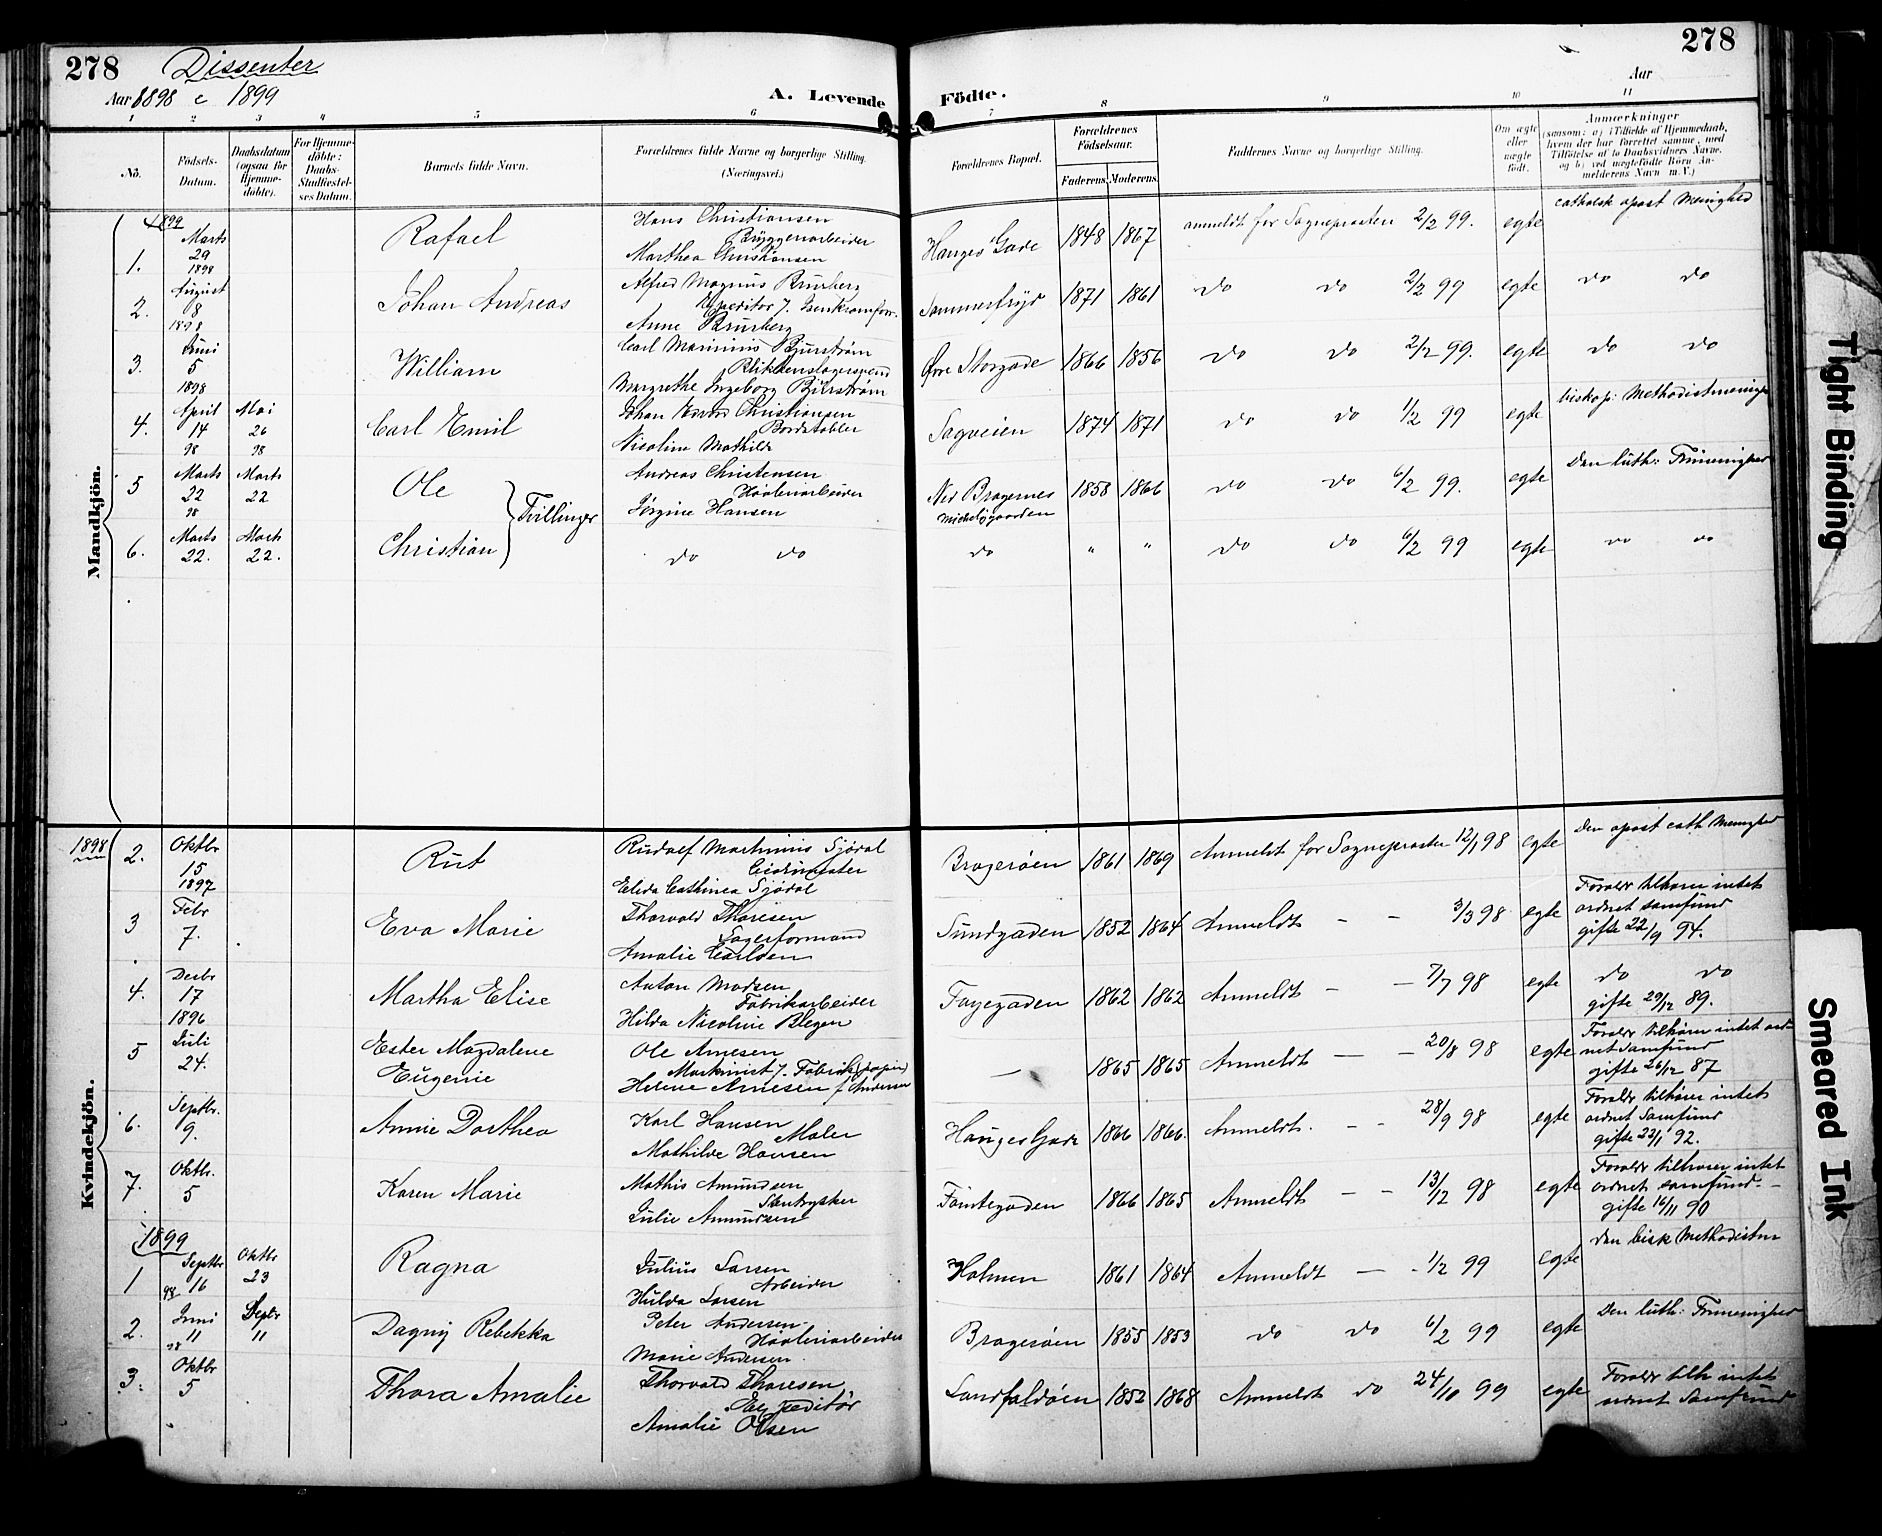 278 Dissenter
Aar 1898 & 1899
A. Levende Födte.
278
Aar
1 2 3 4 5 6 7 8 9 10 11
No.
Födsels-Datum.
Daabsdatum (ogsaa for Hjemme-döbte).
For Hjemme-döbte: Daabs-Stadfæstel-ses Datum.
Barnets fulde Navn.
Forældrenes fulde Navne og borgerlige Stilling. (Næringsvei.)
Forældrenes Bopæl.
Forældrenes Födselsaar.
Faderens. Moderens.
Faddernes Navne og borgerlige Stilling.
Om ægte eller uægte født.
Anmærkninger
(saasom: a) i Tilfælde af Hjemmedaab, hvem der har forrettet samme, med Tilföielse af to Daabsvidners Navne, og b) ved uægtefödte Börn An-melderens Navn m. V.)
Mandkjön.
1899
1. Marts 29 1898 Rafael Hans Christiansen Bryggeriarbeider Marthea Christiansen Hauges Gade 1848 1867 anmeldt for Sogneprosten 2/2 99. egte catholsk apost Menighed
2. August 8 1898 Johan Andreas Alfred Magnus Brunberg Expeditor Anne Brunberg Sommerfryd 1871 1861 do do 2/2 99 egte do do
3. Juni 5 1898 William Carl Marinius Bjurstrøm Blikkenslagersvend Margrethe Ingeborg Bjurstrøm Øvre Storgade 1866 1856 do do 2/2 99. egte do do
4. April 14 98 Mai 26 98 Carl Emil Johan Edvard Christiansen Bordstabler Nicoline Mathilde Sagveien 1874 1871 do do 1/2 99 egte biskop: Methodistmenigh
5 Marts 22 98 Marts 22 Ole Tvillinger Andreas Christensen Høvleriarbeider Jørgine Hansen Ned Bragernes 1858 1866 do do 6/2 99. egte Den luth: Frimenighed
6. Marts 22. Marts 22. Christian do do do " " do do 6/2 99 egte do do
Kvindekjön.
1898
2. Oktbr 15 1897 Rut Rudolf Martinius Sjödal Elida Cathinca Sjödal Bragerøen 1861 1869 Anmeldt for Sogneprosten 12/1 98 egte Den apost cath Menighed
3 Febr 7. Eva Marie Thorvald Thoresen Lagerformand Amalie Carlsen Sundgaden 1852 1864 Anmeldt – – 3/3 98 egte Forældr tilhører intet ordnet samfund gifte 22/9 94.
4. Decbr 17 1896 Martha Elise Anton Madsen Fabrikarbeider Hilda Nicoline Blegen Fayegaden 1862 1862 Anmeldt – – 7/7 98 egte do do gifte 29/12 89.
5 Juli 24. Ester Magdalene Eugenie Ole Arnesen Maskinist Fabrik (papir) Helene Arnesen f Andersen – 1865 1865 Anmeldt – – 20/8 98 egte Forældr tilhører intet ord-net samfund gifte 26/12 87
6. Septbr. 9. Annie Dorthea Karl Hansen Maler Mathilde Hansen Hauges Gade 1866 1866. Anmeldt. – – 28/9 98 egte Forældr tilhører intet ordnet Samfund gifte 22/1 92.
7. Oktbr. 5 Karen Marie Mathis Amundsen Stentrykker Julie Amundsen Tomtegaden 1866 1865 Anmeldt – – 13/12 98 egte Forældr tilhører intet ordnet samfund. – gifte 16/11 90
1899
1 Septbr 98 16 Oktbr 23 Ragna Julius Larsen Arbeider Hulda Larsen Holmen 1861 1864 Anmeldt – – 1/2 99 egte Den bisk Methodistm
2. Juni 11 98 Septbr 11 Dagny Rebekka Peter Andersen. Høvleriarbeider Marie Andersen. Bragerøen 1855 1853 do do 6/2 99 egte Den luth: Frimenighed
3. Oktbr 5 Thora Amalie Thorvald Thoresen Expeditör Amalie Olsen Landfaldøen 1852 1868 Anmeldt do 24/10 99 egte Forældr tilh intet ordnet Samfund
Tight Binding
Smeared Ink